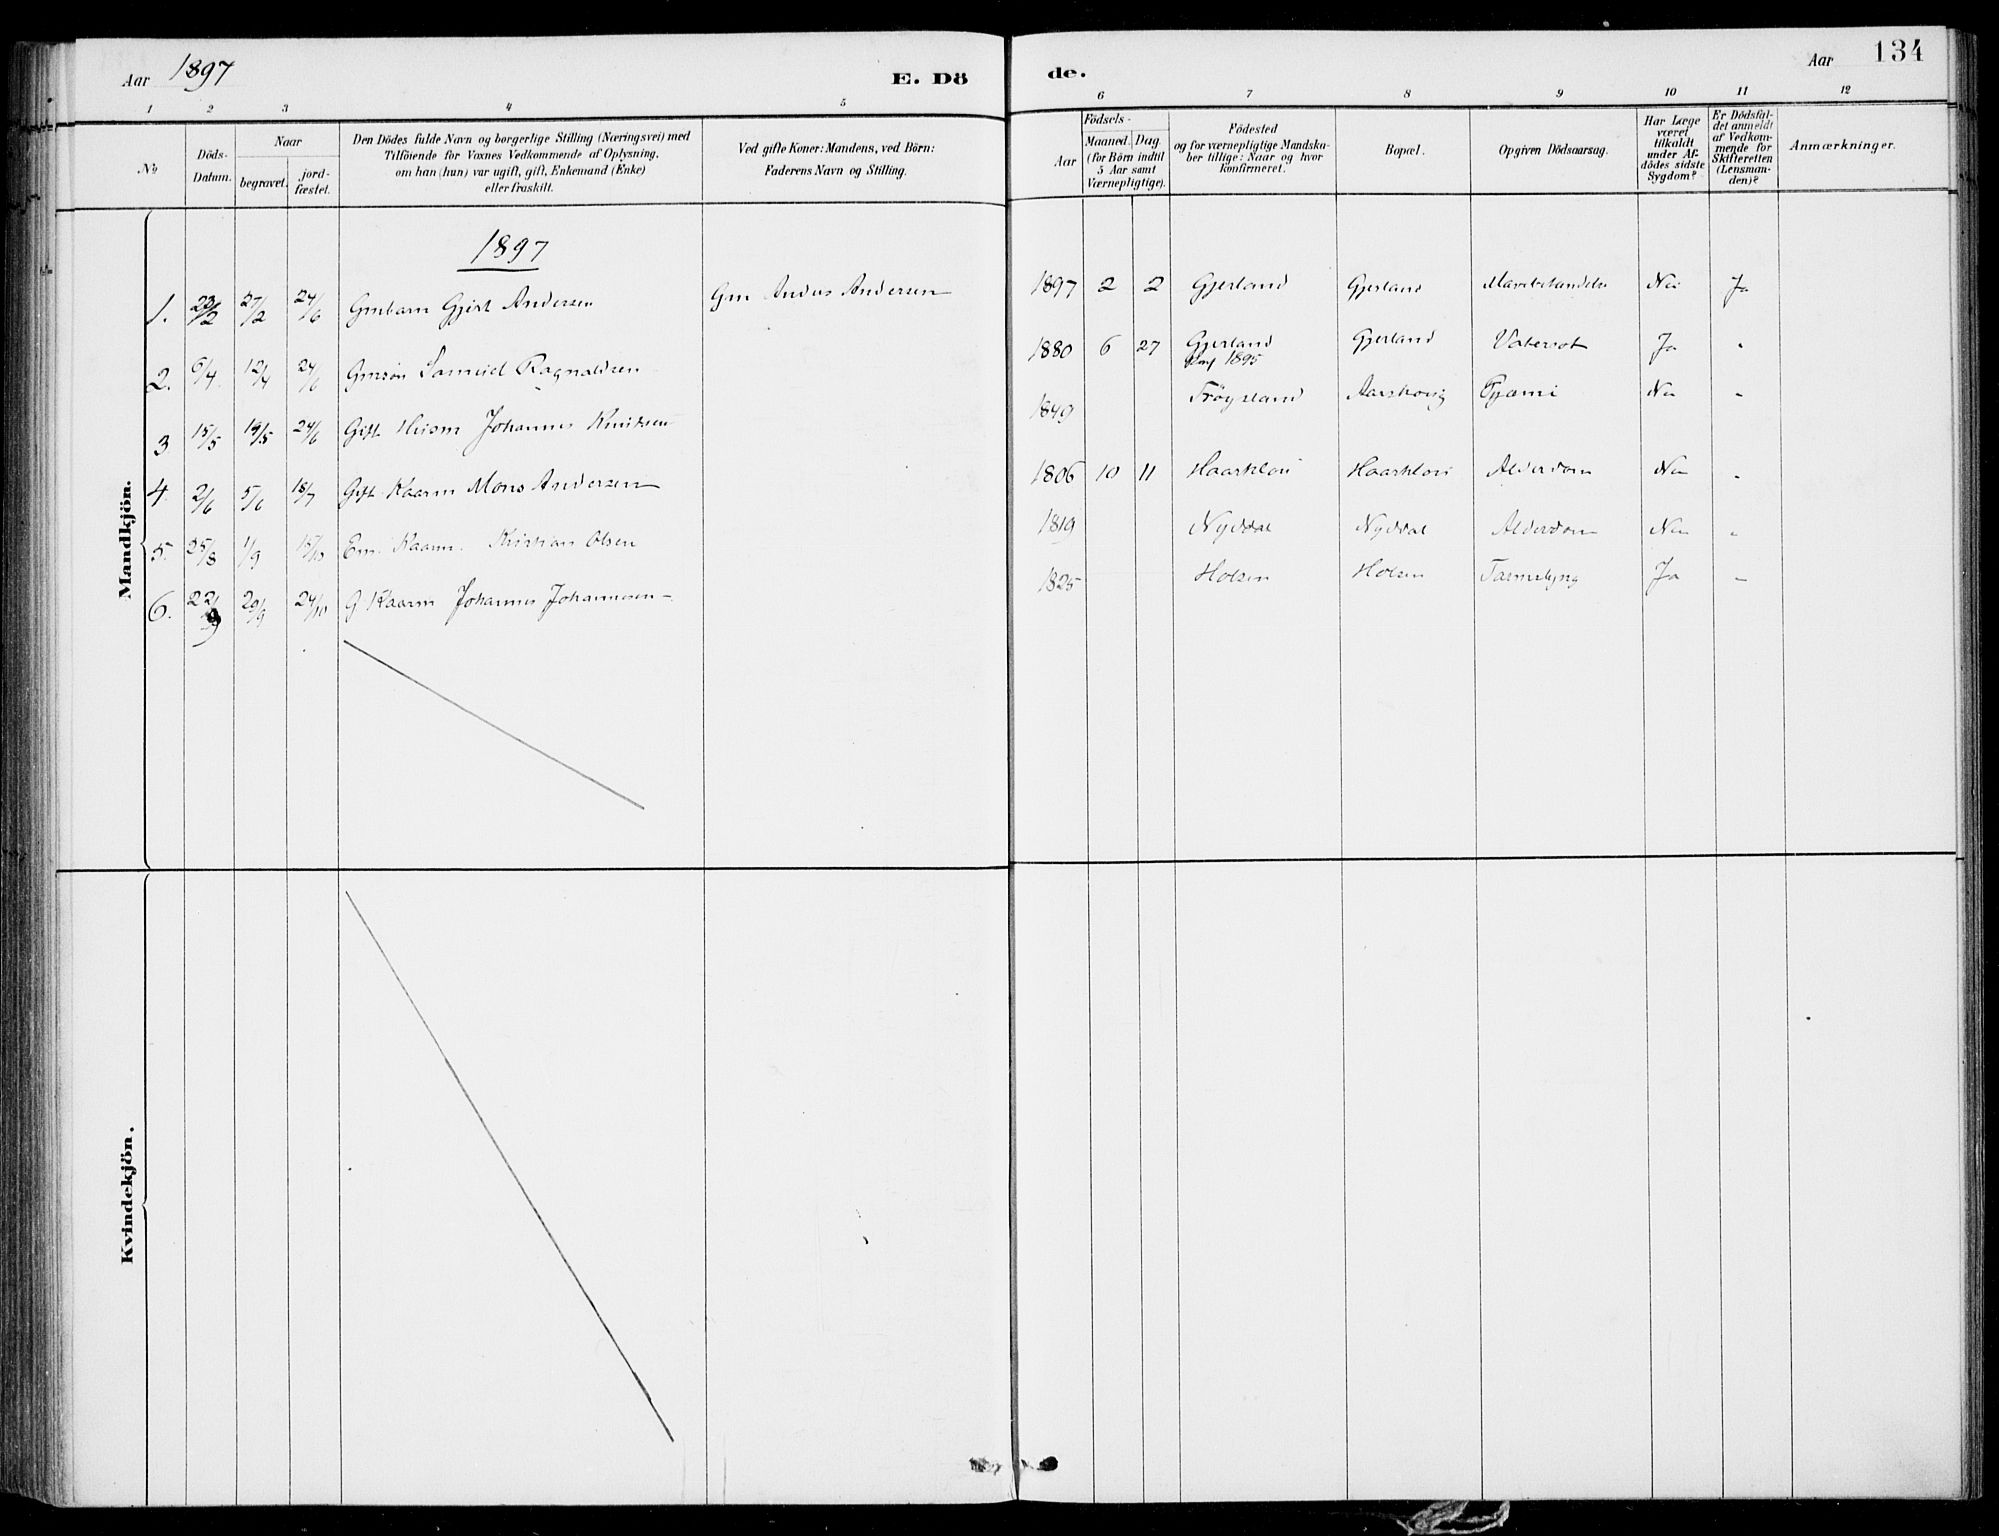 Aar 1897
E. Dö
de.
Aar 134
1 2 3 4 5 6 7 8 9 10 11 12
No
Döds-Datum.
Naar
begravet.
jord-fæstet.
Den Dödes fulde Navn og borgerlige Stilling (Næringsvei) med
Tilföiende for Voxnes Vedkommende af Oplysning,
om han (hun) var ugift, gift, Enkemand (Enke)
eller fraskilt.
Ved gifte Koner: Mandens, ved Börn:
Faderens Navn og Stilling.
Födsels-
Aar
Maaned. Dag.
(for Börn indtil
5 Aar samt
Værnepligtige).
Födested
og for værnepligtige Mandska-
ber tillige: Naar og hvor
Konfirmeret.
Bopæl.
Opgiven Dödsaarsag.
Har Læge
været
tilkaldt
under Af-
dödes sidste
Sygdom?
Er Dödsfal-
det anmeldt
af Vedkom-
mende for
Skifteretten
(Lensman-
den)?
Anmærkninger.
Mandkjön.
1897
1. 22/2 27/2 24/6 Gmbarn Gjert Andersen Gm Andus Andersen 1897 2 2 Gjerland Gjerland Nei Ja
2. 6/4 12/4 24/6 Gmsön Samuel Ragnaldsen 1880 6 27 Gjerland Gjerland Vatersot Ja "
Konf 1895
3 15/5 19/5 24/6 Gift Huism Johannes Knutsen 1849 Tröysland Nei "
4. 2/6 5/6 18/7 Gift Kaarm Mons Andersen 1806 10 11 Haarklou Haarklou Alderdom Nei "
5. 25/8 1/9 15/10 Em. Kaarm. Kristian Olsen 1819 Nyddal Nyddal Alderdom Nei "
6. 22/9 29/9 24/10 G Kaarm Johannes Johannesen 1825 Holsen Holsen Tarmslyng Ja "
Kvindekjön.